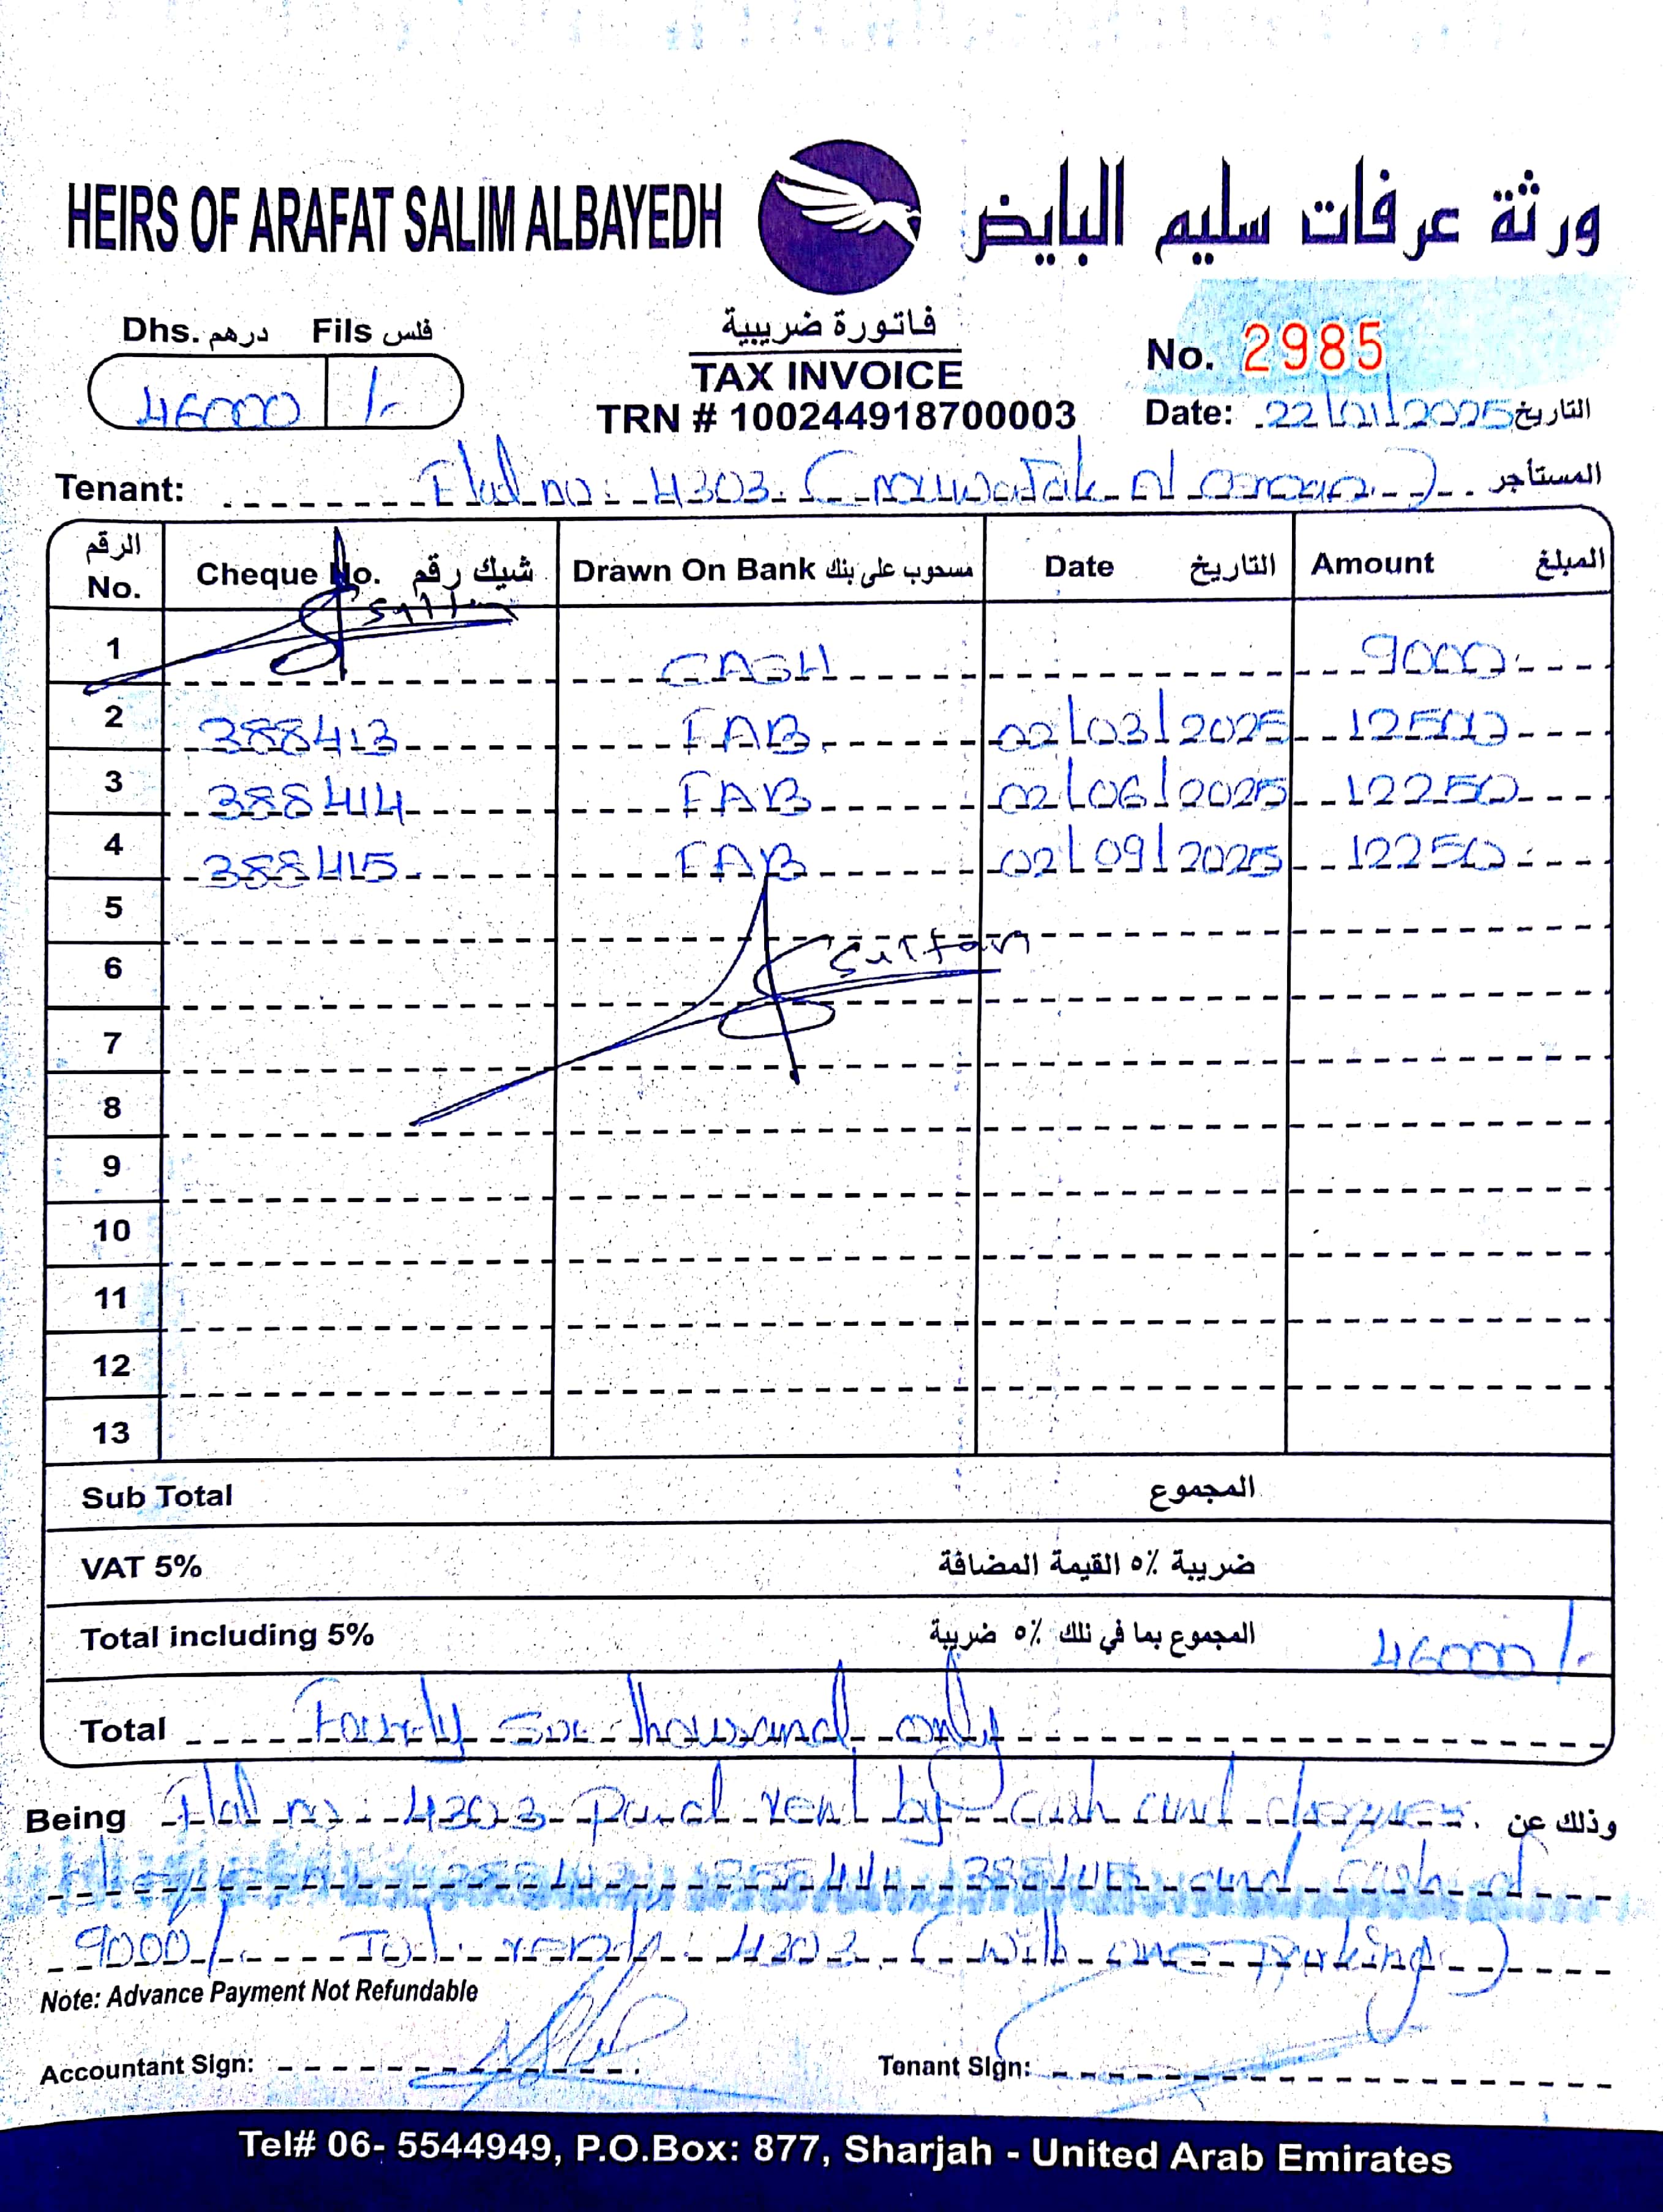 HEIRS OF ARAFAT SALIM ALBAYEDH
ورثة عرفات سليم البايض
Dhs. درهم Fils فلس
46000 /-
فاتورة ضريبية
TAX INVOICE
TRN # 100244918700003
No. 2985
Date: 22/01/2025 التاريخ
Tenant: Flat no: 4303 المستأجر
الرقم No. Cheque No. شيك رقم Drawn On Bank مسحوب على بنك Date التاريخ Amount المبلغ
1 CASH 9000
2 388413 FAB 02/03/2025 12500
3 388414 FAB 02/06/2025 12250
4 388415 FAB 02/09/2025 12250
5
6 Sultan
7
8
9
10
11
12
13
Sub Total المجموع
VAT 5% ضريبة ٥٪ القيمة المضافة
Total including 5% المجموع بما في ذلك ٥٪ ضريبة 46000/-
Total Fourty six thousand only
Being Flat no: 4303 rent by cash and cheques. وذلك عن
388414 388415 and cash of
9000/- 4303 (with one parking)
Note: Advance Payment Not Refundable
Accountant Sign:
Tenant Sign:
Tel# 06- 5544949, P.O.Box: 877, Sharjah - United Arab Emirates